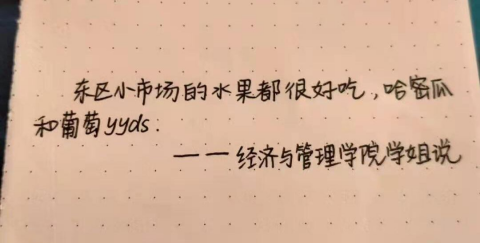 东区小市场的水果都很好吃，哈密瓜
和葡萄yyds.
——经济与管理学院学姐说